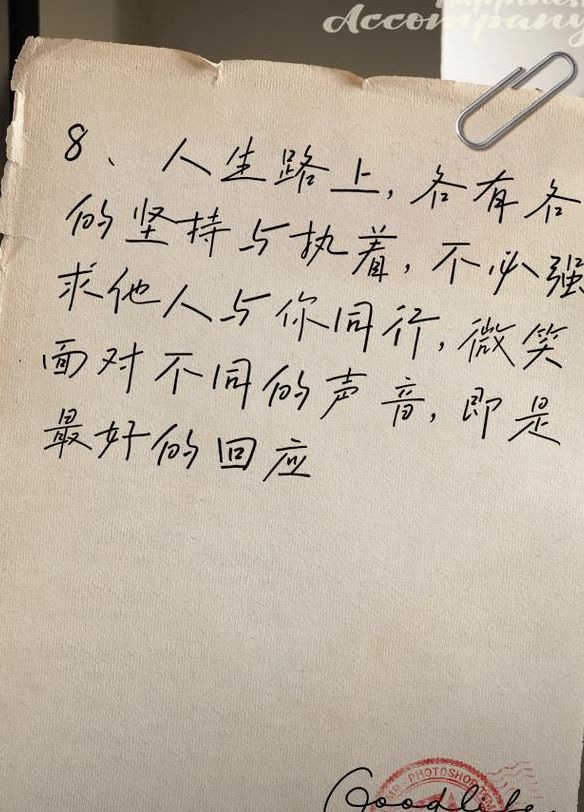 Accompany
8、人生路上，各有各
的坚持与执着，不必强
求他人与你同行，微笑
面对不同的声音，即是
最好的回应
PHOTOSHOP